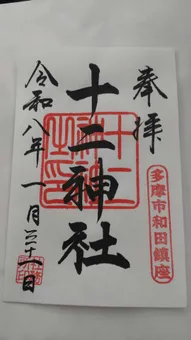 奉拝
十二神社
多摩市和田鎮座
令和八年一月三十一日